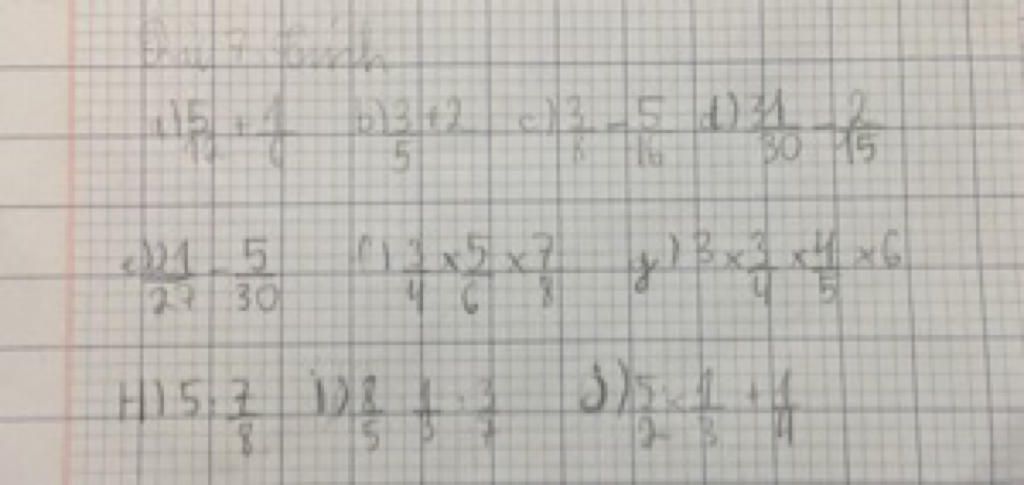 Bài 7. Tính
a) 5/12 + 1/6 b) 3/5 + 2 c) 3/8 - 5/16 d) 31/30 - 2/15
e) 21/27 - 5/30 f) 3/4 × 5/6 × 7/8 g) 3 × 3/4 × 4/5 × 6
H) 5 : 7/8 i) 8/5 1/3 : 3/7 j) 5/2 × 1/3 + 1/4